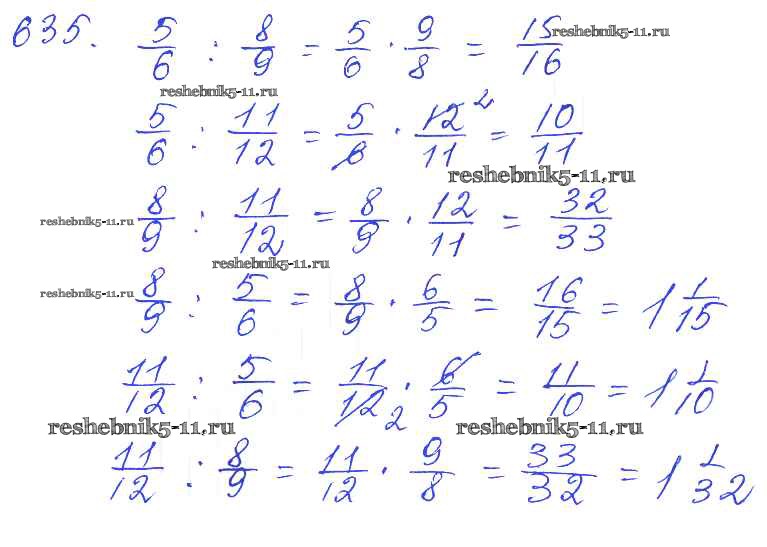 635. 5/6 : 8/9 = 5/6 · 9/8 = 15/16 reshebnik5-11.ru
reshebnik5-11.ru
5/6 : 11/12 = 5/6 · 12/11 2 = 10/11
reshebnik5-11.ru
reshebnik5-11.ru 8/9 : 11/12 = 8/9 · 12/11 = 32/33
reshebnik5-11.ru
reshebnik5-11.ru 8/9 : 5/6 = 8/9 · 6/5 = 16/15 = 1 1/15
11/12 : 5/6 = 11/12 2 · 6/5 = 11/10 = 1 1/10
reshebnik5-11.ru reshebnik5-11.ru
11/12 : 8/9 = 11/12 · 9/8 = 33/32 = 1 1/32